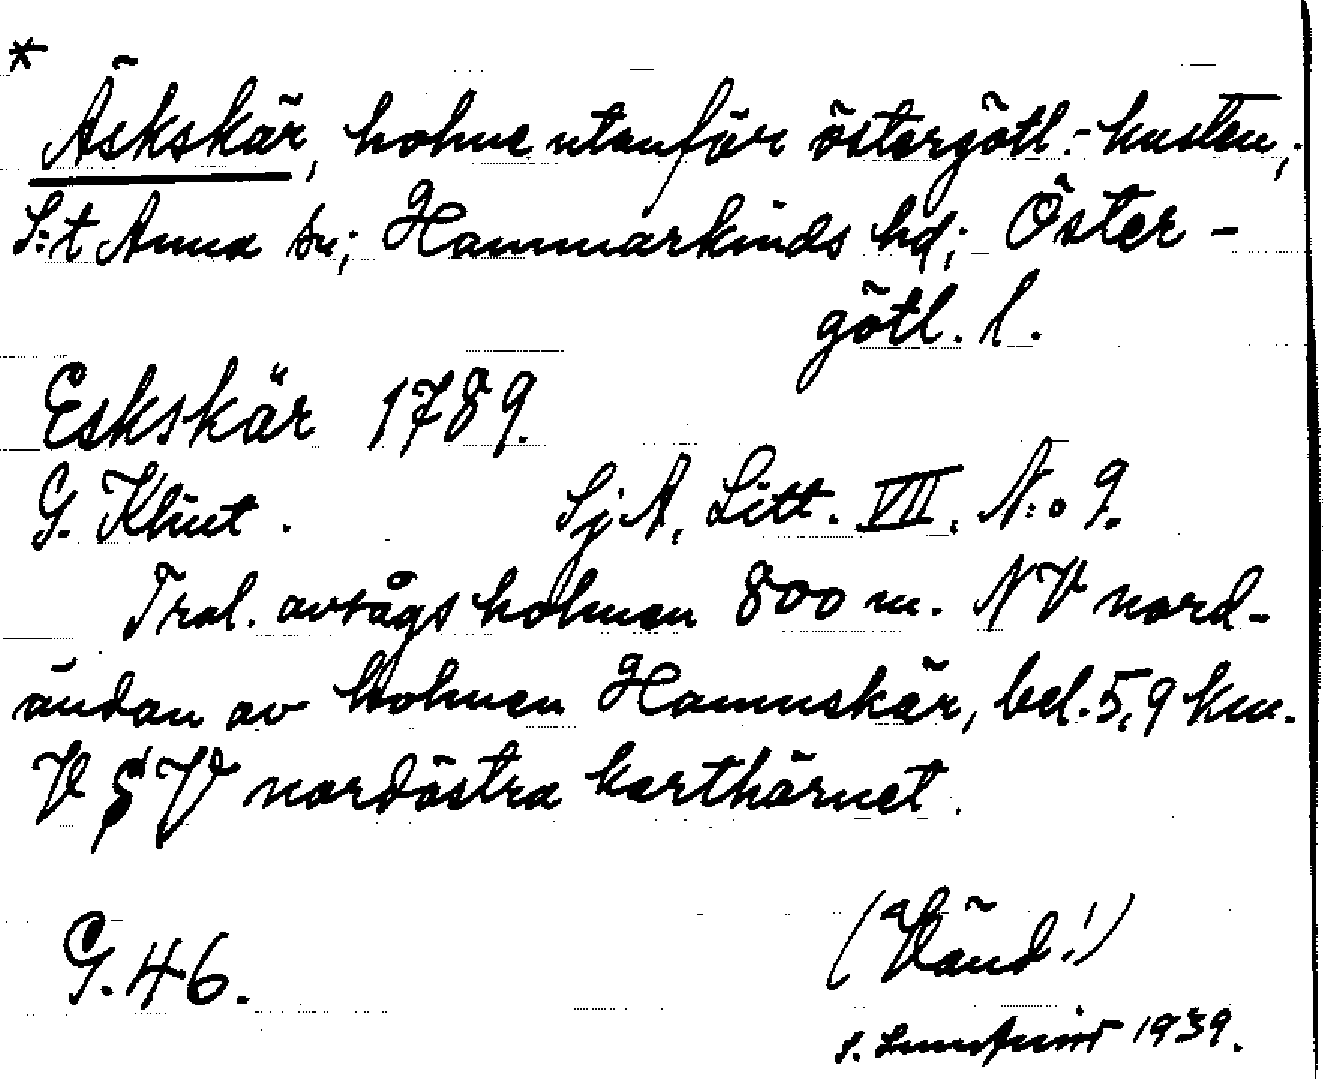 *
Äskskär, holme utanför östergötl.-kusten,
S:t Anna sn; Hammarkinds hd; Öster-
götl. l.
Eskskär 1789.
G. Klint. SjA, Litt. VII. N:o 9.
Trol. avsågs holmen 800 m. NV nord-
ändan av holmen Hamnskär, bel. 5,9 km.
V S V nordöstra karthörnet.
(Vänd!)
G. 46.
1939.